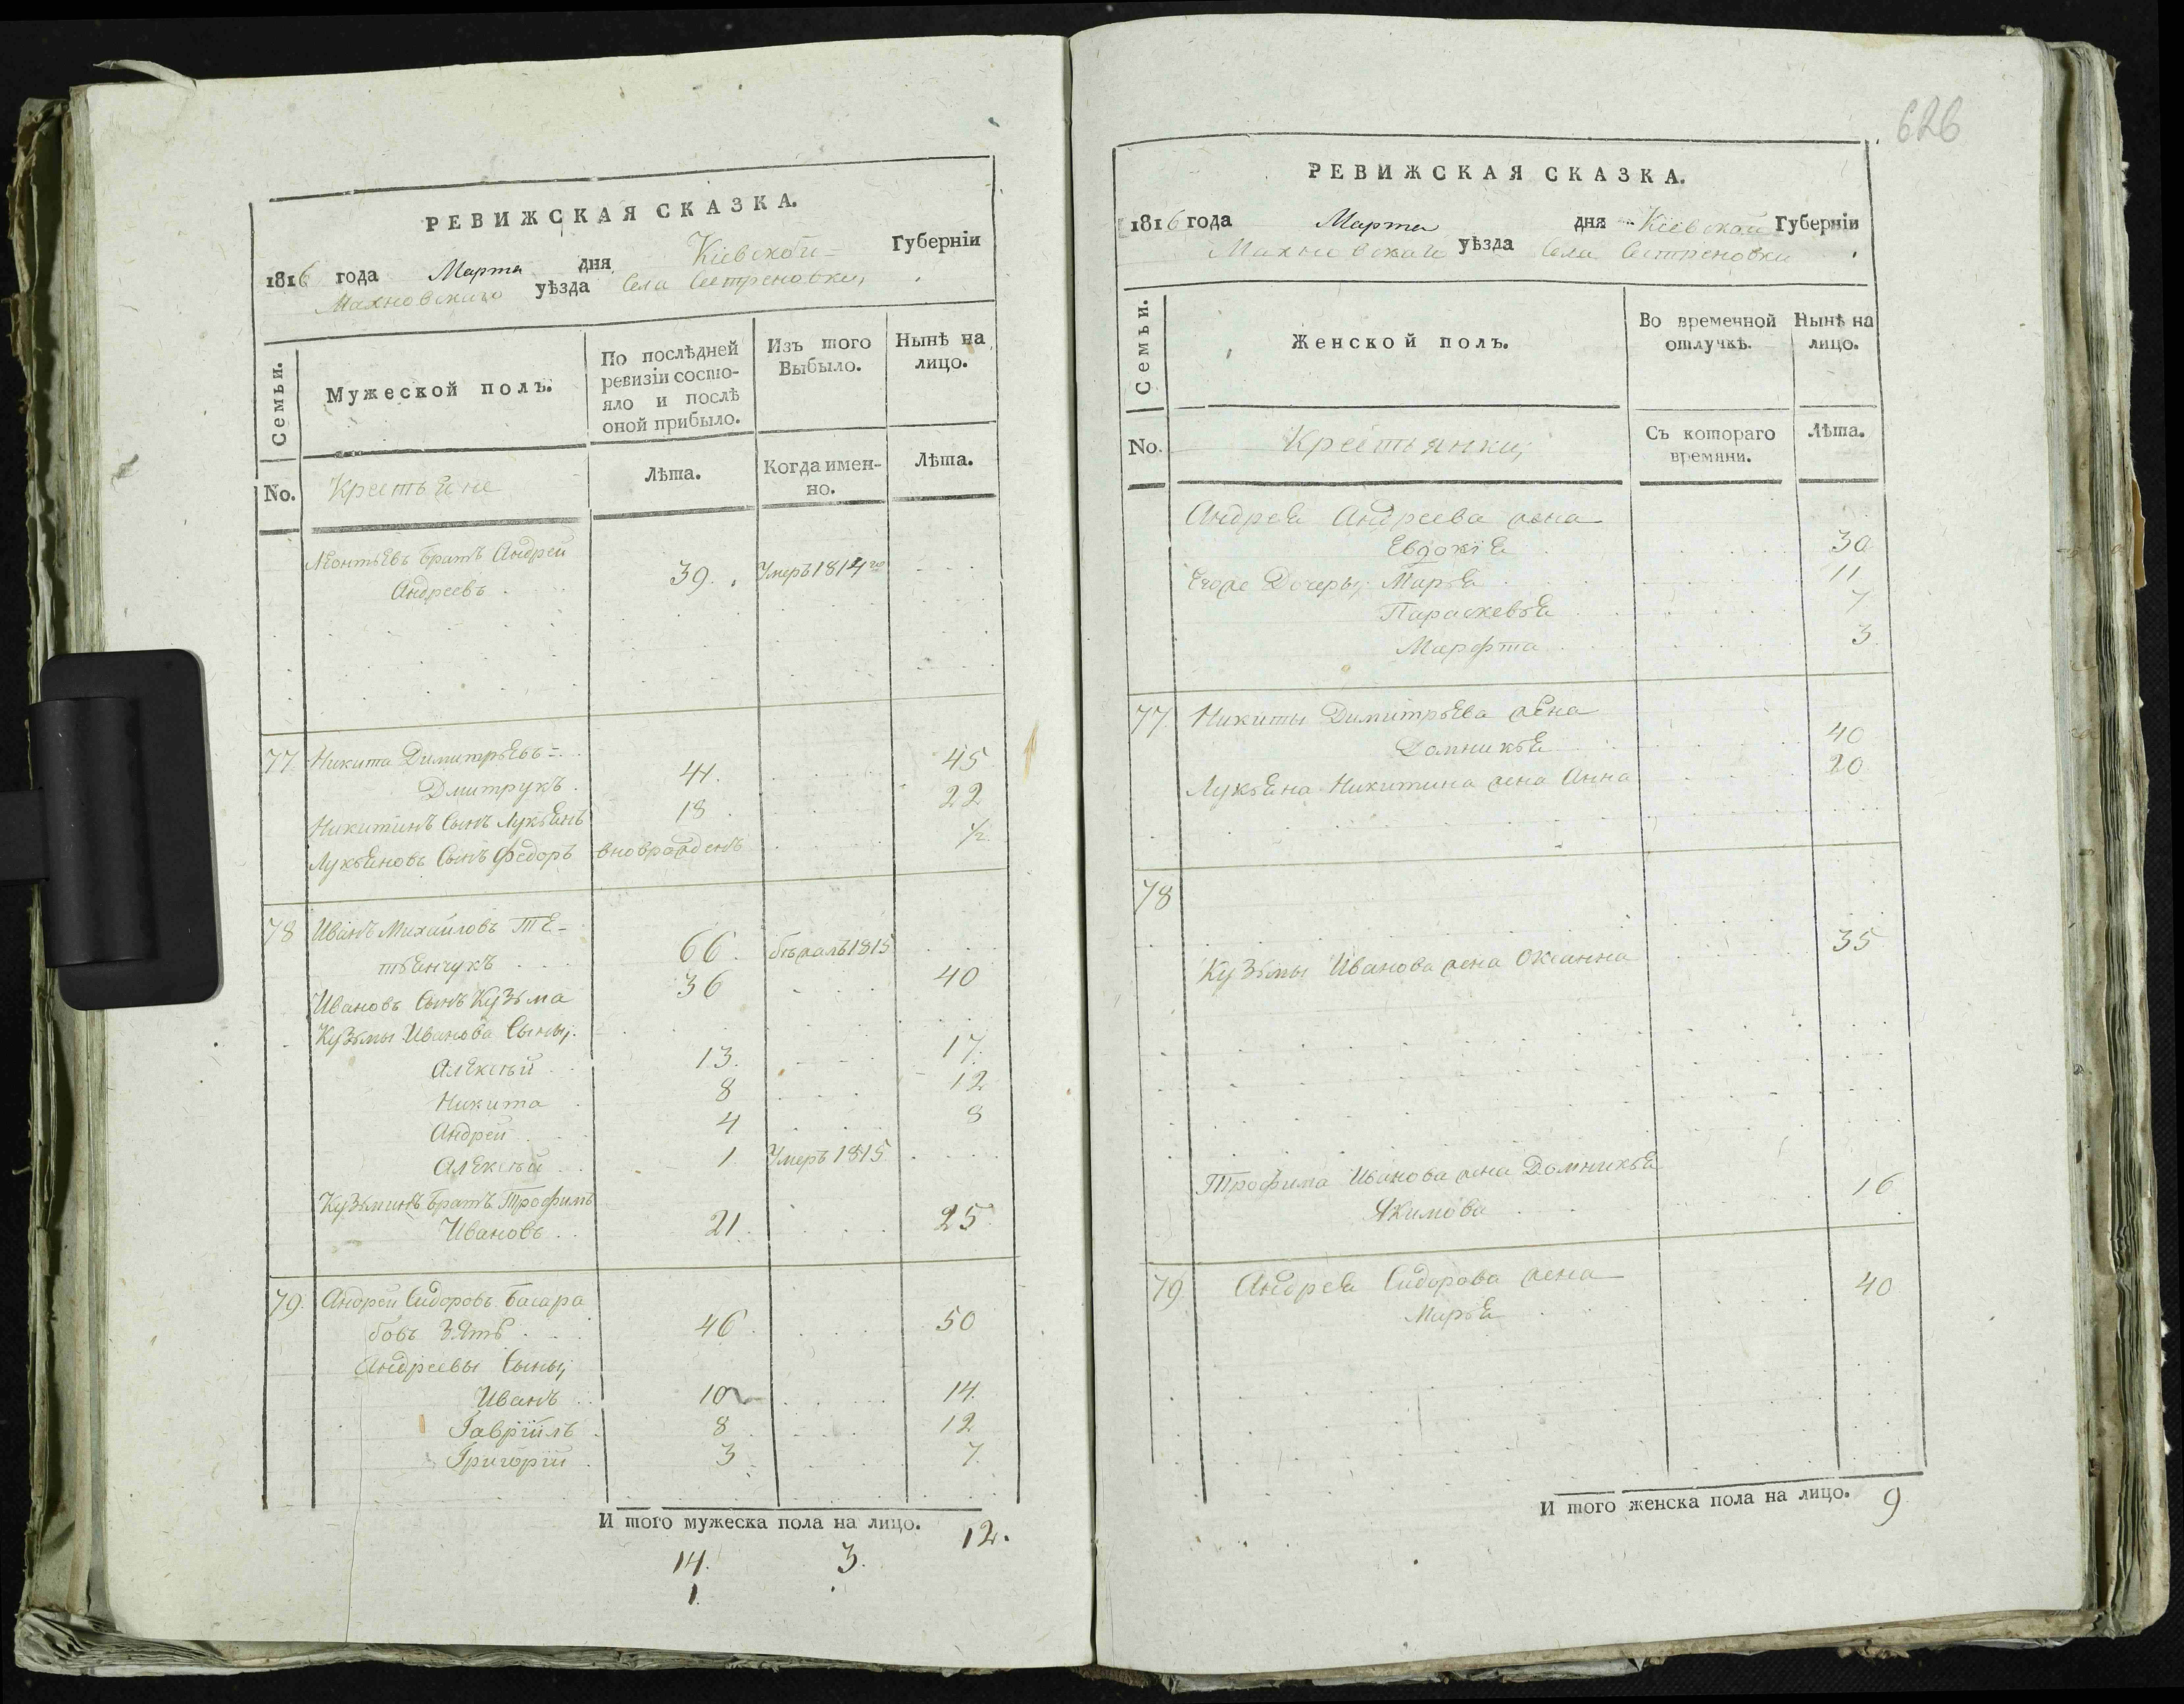 РЕВИЖСКАЯ СКАЗКА.
1816 года Марта дня Кіевской Губерніи
Махновскаго уѣзда Села Сестреновки,
Семьи.
Мужеской полъ.
По послѣдней ревизіи состо-
яло и послѣ
оной прибыло.
Изъ того
Выбыло.
Нынѣ на
лицо.
No.
Крестьяне
Лѣта.
Когда имен-
но.
Лѣта.
Леонтьевъ братъ Андрей
Андреевъ 39. Умеръ 1814го
77 Никита Димитрьевъ=
Дмитрукъ 41. 45
Никитинъ Сынъ Лукьянъ 18 22
Лукьяновъ Сынъ Федоръ вновьрожденъ ½
78 Иванъ Михайловъ Те-
тьянчукъ 66. бѣжалъ 1815
Ивановъ Сынъ Кузьма 36 40
Кузьмы Иванова Сыны;
Алексѣй 13. 17.
Никита 8 12
Андрей 4 8
Алексѣй 1. Умеръ 1815
Кузьминъ братъ Трофимъ
Ивановъ 21. 25
79. Андрей Сидоровъ Басара
бовъ Зять 46. 50
Андреевы Сыны;
Иванъ 10 14
Гавріилъ 8 12
Григорій 3 7.
И того мужеска пола на лицо. 12.
14. 3.
1.
626
РЕВИЖСКАЯ СКАЗКА.
1816 года Марта дня Кіевской Губерніи
Махновскаго уѣзда Села Сестреновки
Семьи.
Женской полъ.
Во времечной
отлучкѣ.
Нынѣ на
лицо.
No.
Крестьянки;
Съ котораго
времяни.
Лѣта.
Андрея Андреева жена
Евдокія 30
Егоже Дочеры; Марья 11
Параскевья 7
Марфта 3
77. Никиты Димитрьева жена
Домникья 40
Лукьяна Никитина жена Анна 20
78
Кузьмы Иванова жена Оксанна 35
Трофима Иванова жена Домникья
Якимова 16
79 Андрея Сидорова жена 40
Марья
И того женска пола на лицо. 9